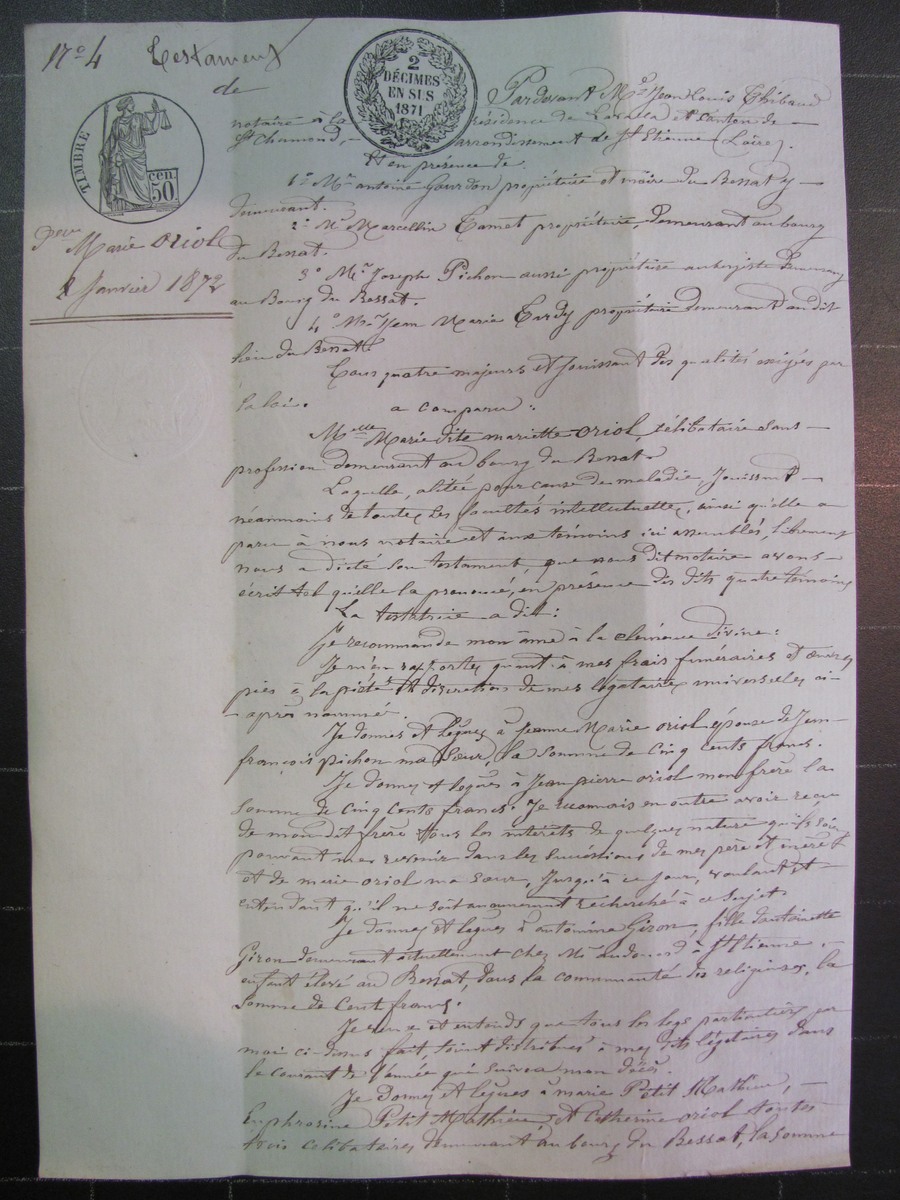 N° 4 Testament
de
2
DÉCIMES
EN SUS
1871
TIMBRE
50 cen.
Marie Oriol
8 Janvier 1872
Pardevant Me Jean Louis Thibaud
notaire à la résidence de Lavalla et canton de
St Chamond, arrondissement de St Etienne (Loire).
Et en présence de
1° Mr antoine Gourdon propriétaire et maire du Bessat y
demeurant.
2° Mr Marcellin Tamet propriétaire, demeurant au bourg
du Bessat.
3° Mr Joseph Pichon aussi propriétaire aubergiste demeurant
au Bourg du Bessat.
4° Mr Jean Marie Tardy propriétaire demeurant au dit
lieu du Bessat
Tous quatre majeurs et jouissant des qualités exigées par
la loi.
a comparu :
Melle Marie dite mariette oriol, célibataire sans
profession demeurant au bourg du Bessat.
Laquelle, alitée pour cause de maladie, Jouissant
néanmoins de toutes ses facultés intellectuelles, ainsi qu'elle a
paru à nous notaire et aux témoins ici assemblés, librement
nous a dicté son testament, que nous dit notaire avons
écrit tel qu'elle la prononcé, en présence des dits quatre témoins
La testatrice a dit :
Je recommande mon âme à la clémence divine :
Je m'en rapporte, quant à mes frais funéraires et œuvres
pies à la piété et discrétion de mes légataires universelles ci-
après nommées.
Je donnes et lègues à Jeanne Marie oriol épouse de Jean
françois pichon ma sœur, la somme de cinq cents francs.
Je donnes et lègues à Jean pierre oriol mon frère la
somme de cinq cents francs. Je reconnais en outre avoir reçu
de mon dit frère tous les intérêts de quelques nature qu'ils soient
pouvant me revenir dans les successions de mes père et mère
et de marie oriol ma sœur, jusqu'à ce jour, voulant et
entendant qu'il ne soit aucunement recherché à ce sujet
Je donnes et lègues à antonine Giron, fille d'antoinette
Giron demeurant actuellement chez Mr à St Etienne,
enfant élevé au Bessat, dans la communauté des religieuses, la
somme de Cent francs.
Je veux et entends que tous les legs particuliers par
moi ci-dessus fait, soient distribués à mes dits légataires dans
le courant de l'année qui suivra mon décès.
Je donnes et lègues à marie Petit Mathieu,
Euphrosine Petit Mathieu et Catherine oriol toutes
trois célibataires demeurant au bourg du Bessat, la somme